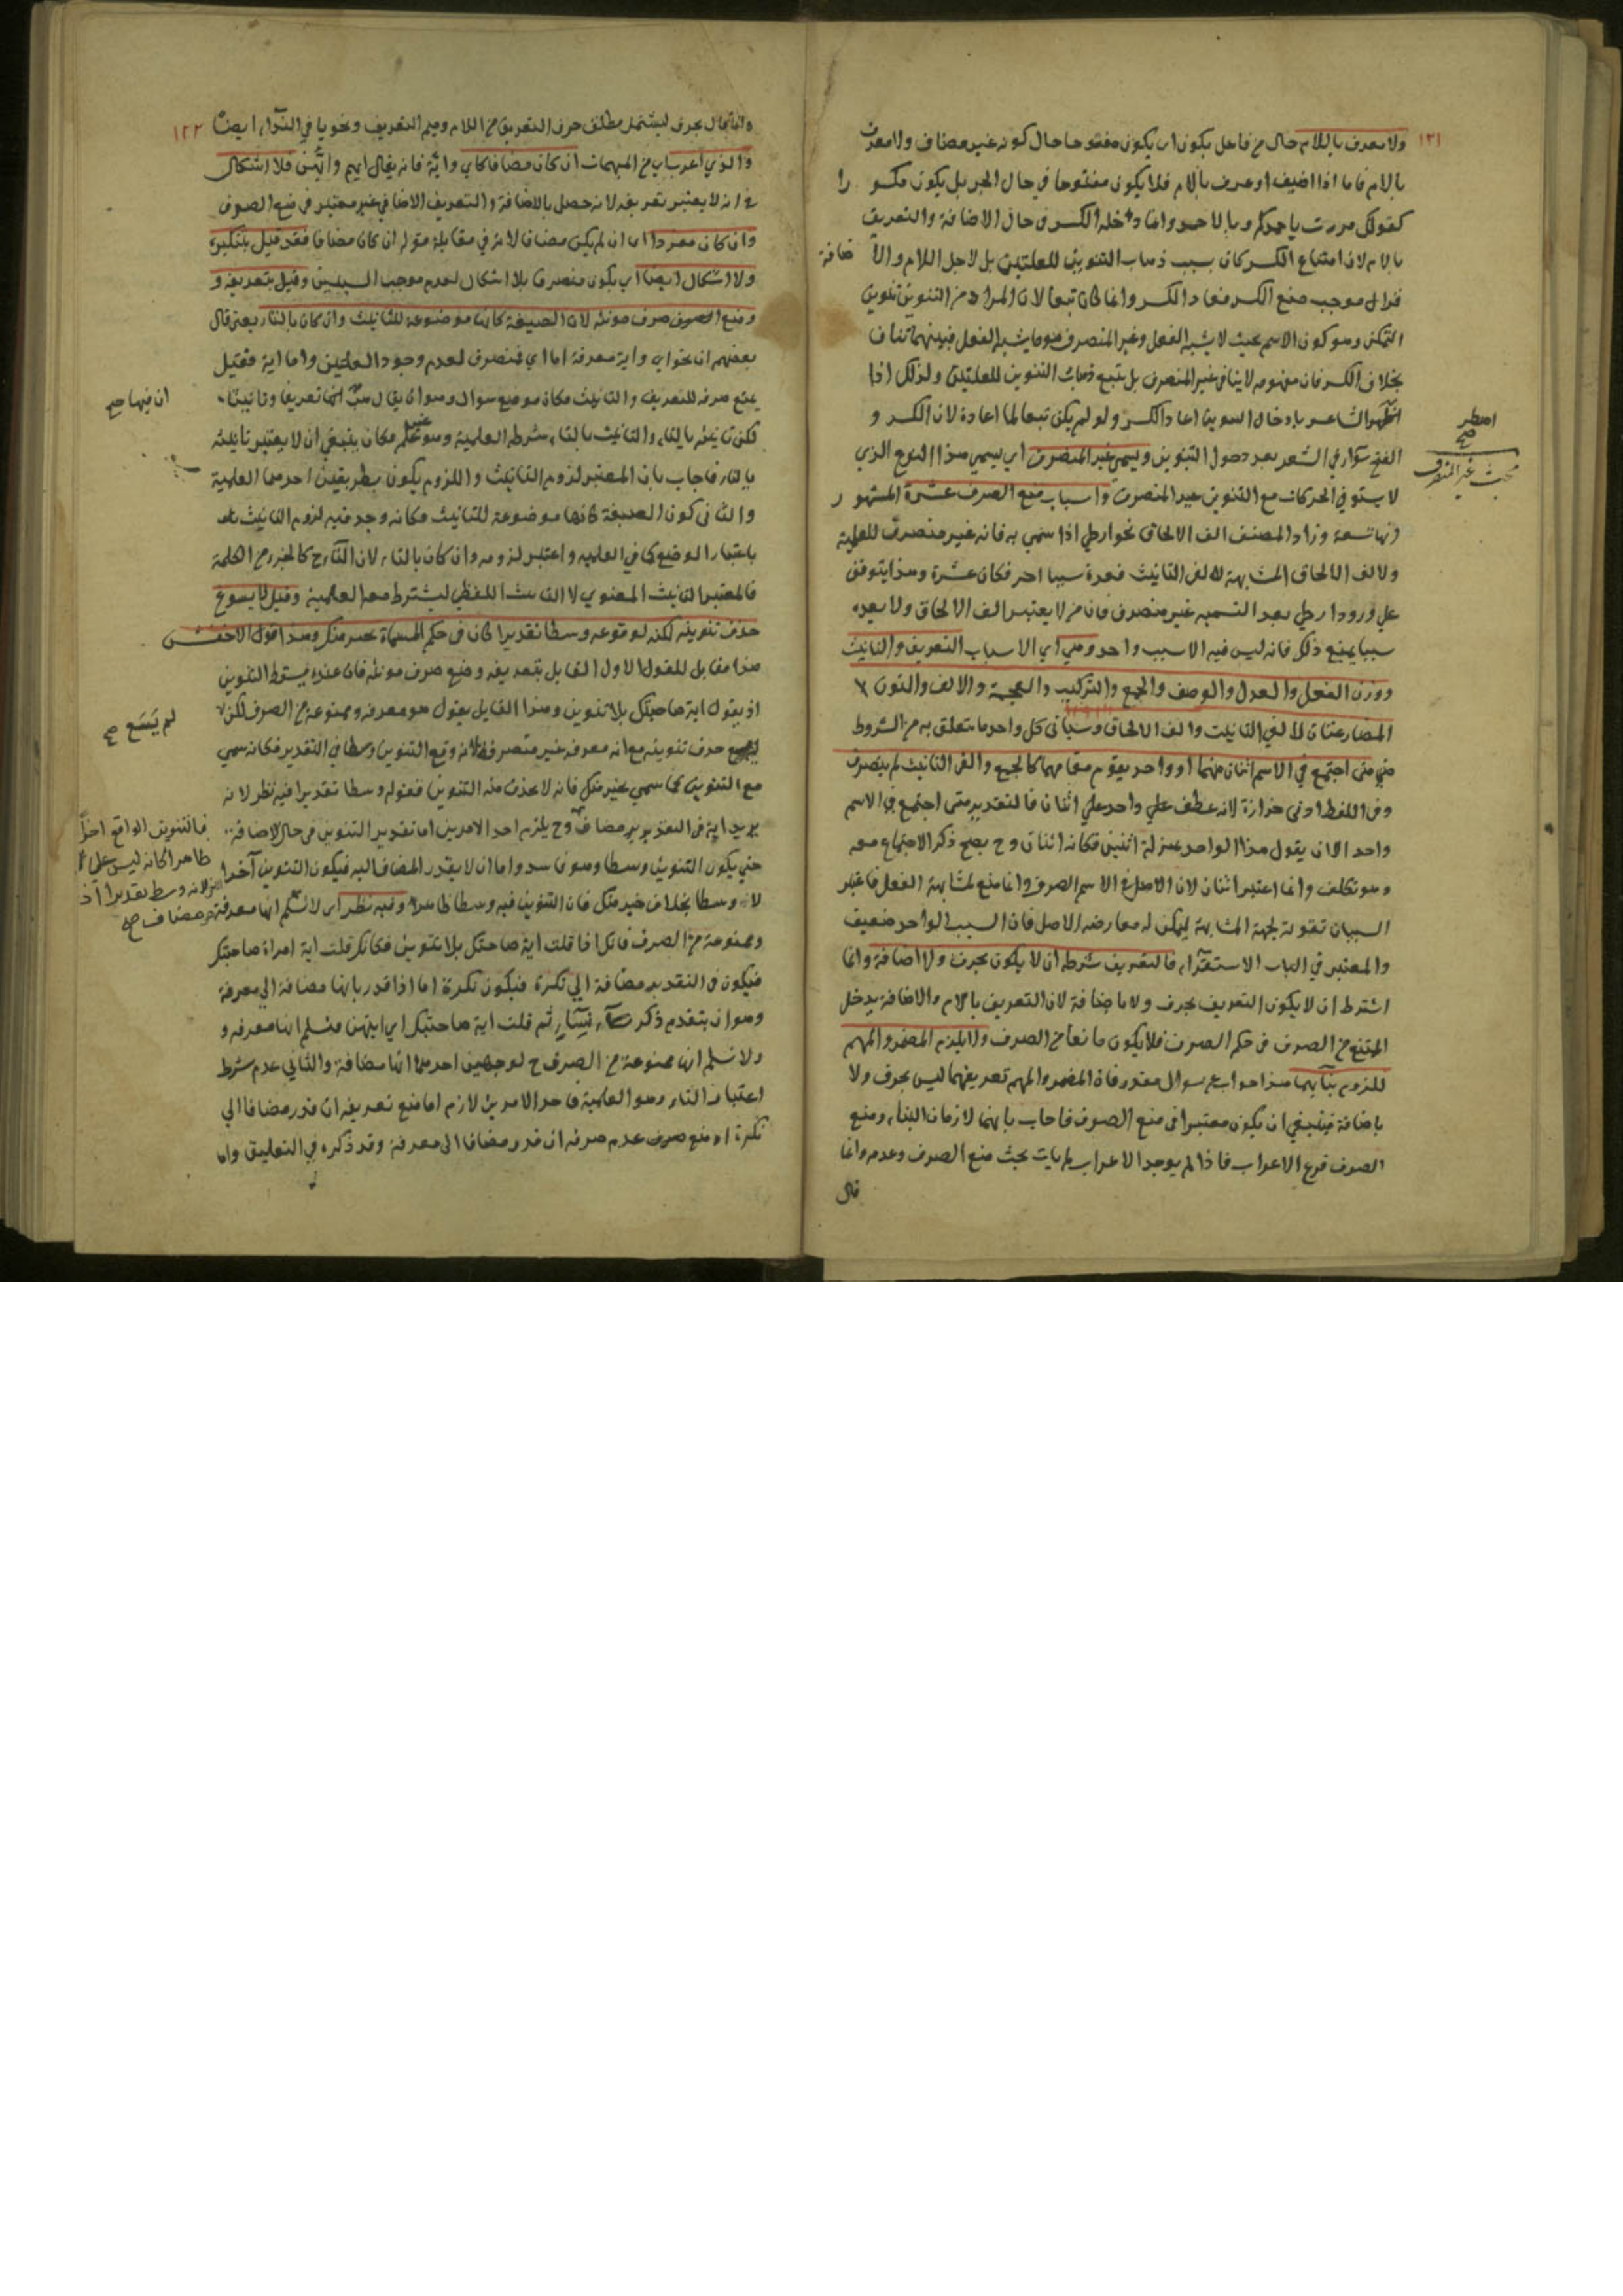 ١٣١
ولا معرف باللام حال من فاعل يكون اى يكون مفتوحا حال كونه غير مضاف ولا معرف
باللام فاما اذا اضيف او عرف باللام فلا يكون مفتوحا في حال الجر بل يكون مكسورا
كقولك مررت باحمدكم وبالاحمر وانما دخله الكسر في حال الاضافة والتعريف
باللام لان امتناع الكسر كان بسبب ذهاب التنوين للعلتين بل لاجل اللام والاضافة
فزال موجب منع الكسر فعاد الكسر وانما كان تبعا لان المراد من التنوين تنوين
التمكن وهو كون الاسم بحيث لا يشبه الفعل وغير المنصرف هو ما يشبه الفعل فبينهما تناف
بخلاف الكسر فان مفهومه لا ينافي غير المنصرف بل يتبع ذهاب التنوين للعلتين ولذلك اذا
اضطر الشاعر بادخال التنوين اعاد الكسر ولو لم يكن تبعا لما اعاده لان الكسر و
الفتح سواء في الشعر بعد دخول التنوين ويسمى غير المنصرف اي يسمى هذا النوع الذي
لا يستوفي الحركات مع التنوين غير المنصرف واسباب منع الصرف عشرة المشهور
انها تسعة وزاد المصنف الف الالحاق نحو ارطى اذا سمي به فانه غير منصرف للعلمية
ولالف الالحاق المشابهة لالف التانيث فعده سببا اخر فكان عشرة وهذا يتوقف
على ورود ارطى بعد التسمية غير منصرف فان من لا يعتبر الف الالحاق ولا يعده
سببا يمنع ذلك فانه ليس فيه الا سبب واحد وهي اي الاسباب التعريف والتانيث
ووزن الفعل والعدل والوصف والجمع والتركيب والعجمة والالف والنون
المضارعتان لالفي التانيث والف الالحاق وسياتى كل واحد ما يتعلق به من الشروط
فمتى اجتمع في الاسم اثنان منهما او واحد يقوم مقامهما كالجمع والفى التانيث لم ينصرف
وفى اللفظ ادنى حزازة لانه عطف على واحد على اثنان فالتقدير متى اجتمع في الاسم
واحد الا ان يقول هذا الواحد بمنزلة اثنين فكانه اثنان وح يصح ذكر الاجتماع معه
وهو تكلف وانما اعتبر اثنان لان الاصل في الاسم الصرف وانما منع لمشابهة الفعل فاعتبر
السببان تقوية لجهة المشابهة ليمكن له معارضة الاصل فان السبب الواحد ضعيف
والمعتبر في الباب الاستقراء فالتعريف شرطه ان لا يكون بحرف ولا اضافة وانما
اشترط ان لا يكون التعريف بحرف ولا باضافة لان التعريف باللام والاضافة يدخل
الممتنع من الصرف في حكم الصرف فلا يكون مانعا من الصرف ولا يلزم المضمر والمبهم
للزوم بنائهما هذا جواب عن سوال مقدر فان المضمر والمبهم تعريفهما ليس بحرف ولا
باضافة فينبغي ان يكون معتبرا في منع الصرف فاجاب بانهما لازمان البناء ومنع
الصرف فرع الاعراب فاذا لم يوجد الاعراب لم يات بحث منع الصرف وعدمه وانما
قال
اضطر
صح
مبحث غير المنصرف
١٣٢
وانما قال بحرف ليشتمل مطلق حرف التعريف من اللام وميم التعريف ونحو يا في النداء ايضا
والذي اعرب اي من المبهمات ان كان مضافا كاي واية فانه يقال ايهم وايتهن فلا اشكال
في انه لا يعتبر تعريفه لانه حصل بالاضافة والتعريف الاضافي غير معتبر في منع الصرف
وان كان مفردا اى ان لم يكن مضافا لانه في مقابلة قوله ان كان مضافا فقد قيل بتنكيره
ولا اشكال ايضا اي يكون منصرفا بلا اشكال لعدم موجب السببين وقيل بتعريفه و
ومنع الصرف صرف مونثه لان الصيغة كانها موضوعة للتانيث وان كان بالتاء يعنى قال
بعضهم ان نحو اي واية معرفة اما اي فمنصرف لعدم وجود العلتين واما اية فقيل
يمنع صرفه للتعريف والتانيث فكان موضع سوال وهو ان يقال هب انها تعريفا وتانيثا
لكن تانيثه بالتاء والتانيث بالتاء شرطه العلمية وهو غير علم فكان ينبغي ان لا يعتبر تانيثه
بالتاء فاجاب بان المعتبر لزوم التانيث واللزوم يكون بطريقين احدهما العلمية
والثانى كون الصيغة كانها موضوعة للتانيث فكانه وجد فيه لزوم التانيث
باعتبار الوضع كما في العلمية واعتبر لزومه وان كان بالتاء لان التاء ح كالجزء من الكلمة
فالمعتبر التانيث المعنوي لا التانيث اللفظي ليشترط معه العلمية وقيل لا يسوغ
حذف تنوينه لكنه لوقوعه وسطا تقديرا كان في حكم المسماة بخير منك وهذا قول الاخفش
هذا مقابل للقول الاول القايل بتعريفه ومنع صرف مونثه فان عنده يسقط التنوين
اذ يقول اية صاحبتك بلا تنوين وهذا القايل يقول هو معرفة وممنوعة من الصرف لكن
حذف تنوينه مع انه معرفة غير منصرفة لانه وقع التنوين وسطا في التقدير فكانه سمي
مع التنوين كما سمي بخير منك فانه لا يحذف منه التنوين فقوله وسطا تقديرا فيه نظر لانه
يريد اية في التقدير مضاف وح يلزم احد الامرين اما تقدير التنوين في حال الاضافة
حتى يكون التنوين وسطا وهو فاسد واما ان لا يقدر المضاف اليه فيكون التنوين آخرا
لا وسطا بخلاف خير منك فان التنوين فيه وسطا ظاهرا وفيه نظر اى لا نسلم انها معرفة
وممنوعة من الصرف فانك اذا قلت اية صاحبتك بلا تنوين فكانك قلت اية امراة صاحبتك
فيكون في التقدير مضافة الي نكرة فيكون نكرة اما اذا قدر بانها مضافة الى معرفة
وهو ان يتقدم ذكر نساء ثم قلت اية صاحبتك اي ايتهن فنسلم انها معرفة و
ولا نسلم انها ممنوعة من الصرف ح لوجهين احدهما انها مضافة والثانى عدم شرط
اعتبار التاء وهو العلمية فاحد الامرين لازم اما منع تعريفه ان قدر مضافا الي
نكرة او منع عدم صرفه ان قدر مضافا الى معرفة وقد ذكره في التعليق وان
ان فيها صح
لم يسغ صح
فالتنوين الواقع آخرا
ظاهرا كانه ليس
لانه وسط تقديرا اذ
مضاف صح